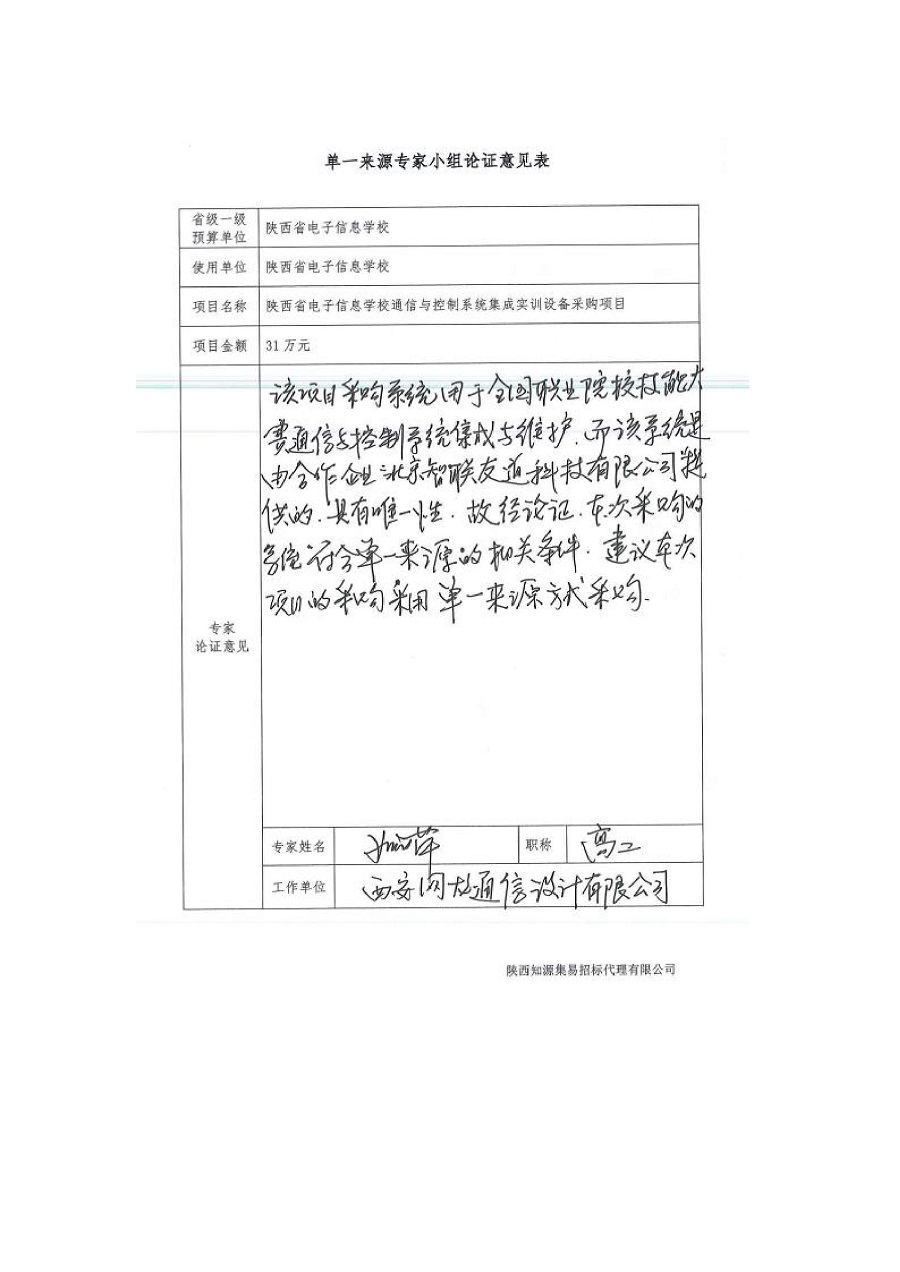 单一来源专家小组论证意见表
省级一级
预算单位
陕西省电子信息学校
使用单位
陕西省电子信息学校
项目名称
陕西省电子信息学校通信与控制系统集成实训设备采购项目
项目金额
31万元
专家
论证意见
该项目采购系统用于全国职业院校技能大
赛通信与控制系统集成与维护.而该系统是
由合作企业北京智联友道科技有限公司提
供的.具有唯一性.故经论证.本次采购的
系统符合单一来源的相关条件.建议本次
项目的采购采用单一来源方式采购.
专家姓名
职称
高工
工作单位
西安 通信设计有限公司
陕西知源集易招标代理有限公司